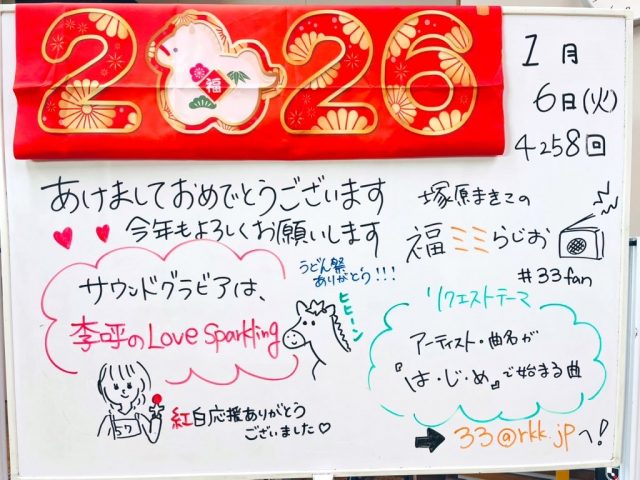 2026
福
1月
6日(火)
4258回
あけましておめでとうございます
今年もよろしくお願いします
塚原まきこの
福ミミらじお
#33fan
サウンドグラビアは、
李呼のLove Sparkling
うどん祭
ありがとう!!!
ヒヒーン
リクエストテーマ
アーティスト・曲名が
『は・じ・め』で始まる曲
57
紅白応援ありがとう
ございました♡
➡ 33@rkk.jpへ!